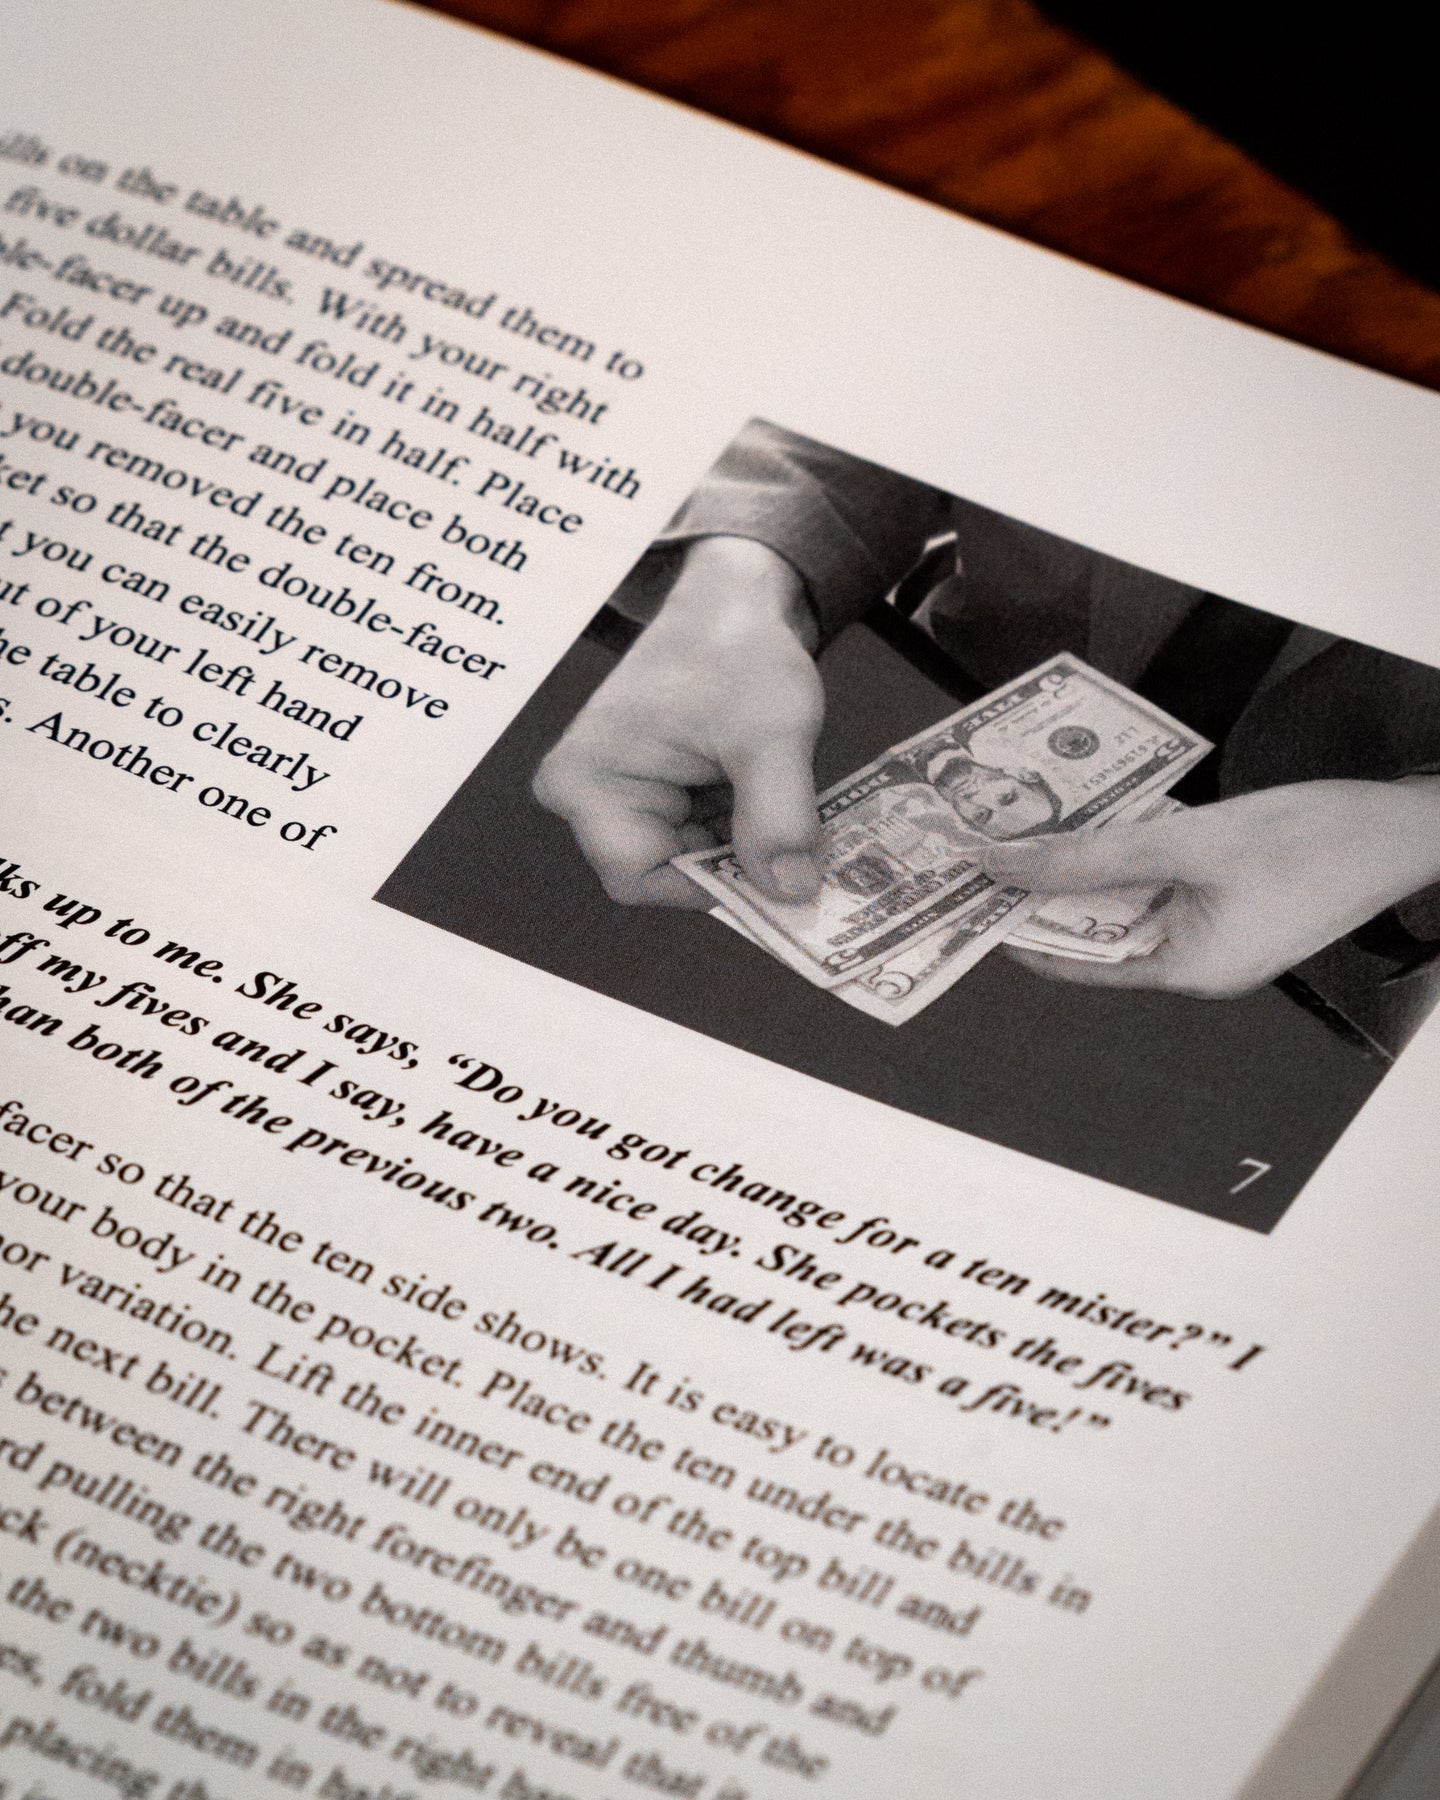 on the table and spread them to
five dollar bills. With your right
-facer up and fold it in half with
Fold the real five in half. Place
double-facer and place both
you removed the ten from.
so that the double-facer
you can easily remove
of your left hand
table to clearly
Another one of
up to me. She says, “Do you got change for a ten mister?” I
off my fives and I say, have a nice day. She pockets the fives
both of the previous two. All I had left was a five!”
facer so that the ten side shows. It is easy to locate the
your body in the pocket. Place the ten under the bills in
variation. Lift the inner end of the top bill and
the next bill. There will only be one bill on top of
between the right forefinger and thumb and
pulling the two bottom bills free of the
(necktie) so as not to reveal that
the two bills in the right
fold them in half
placing
7